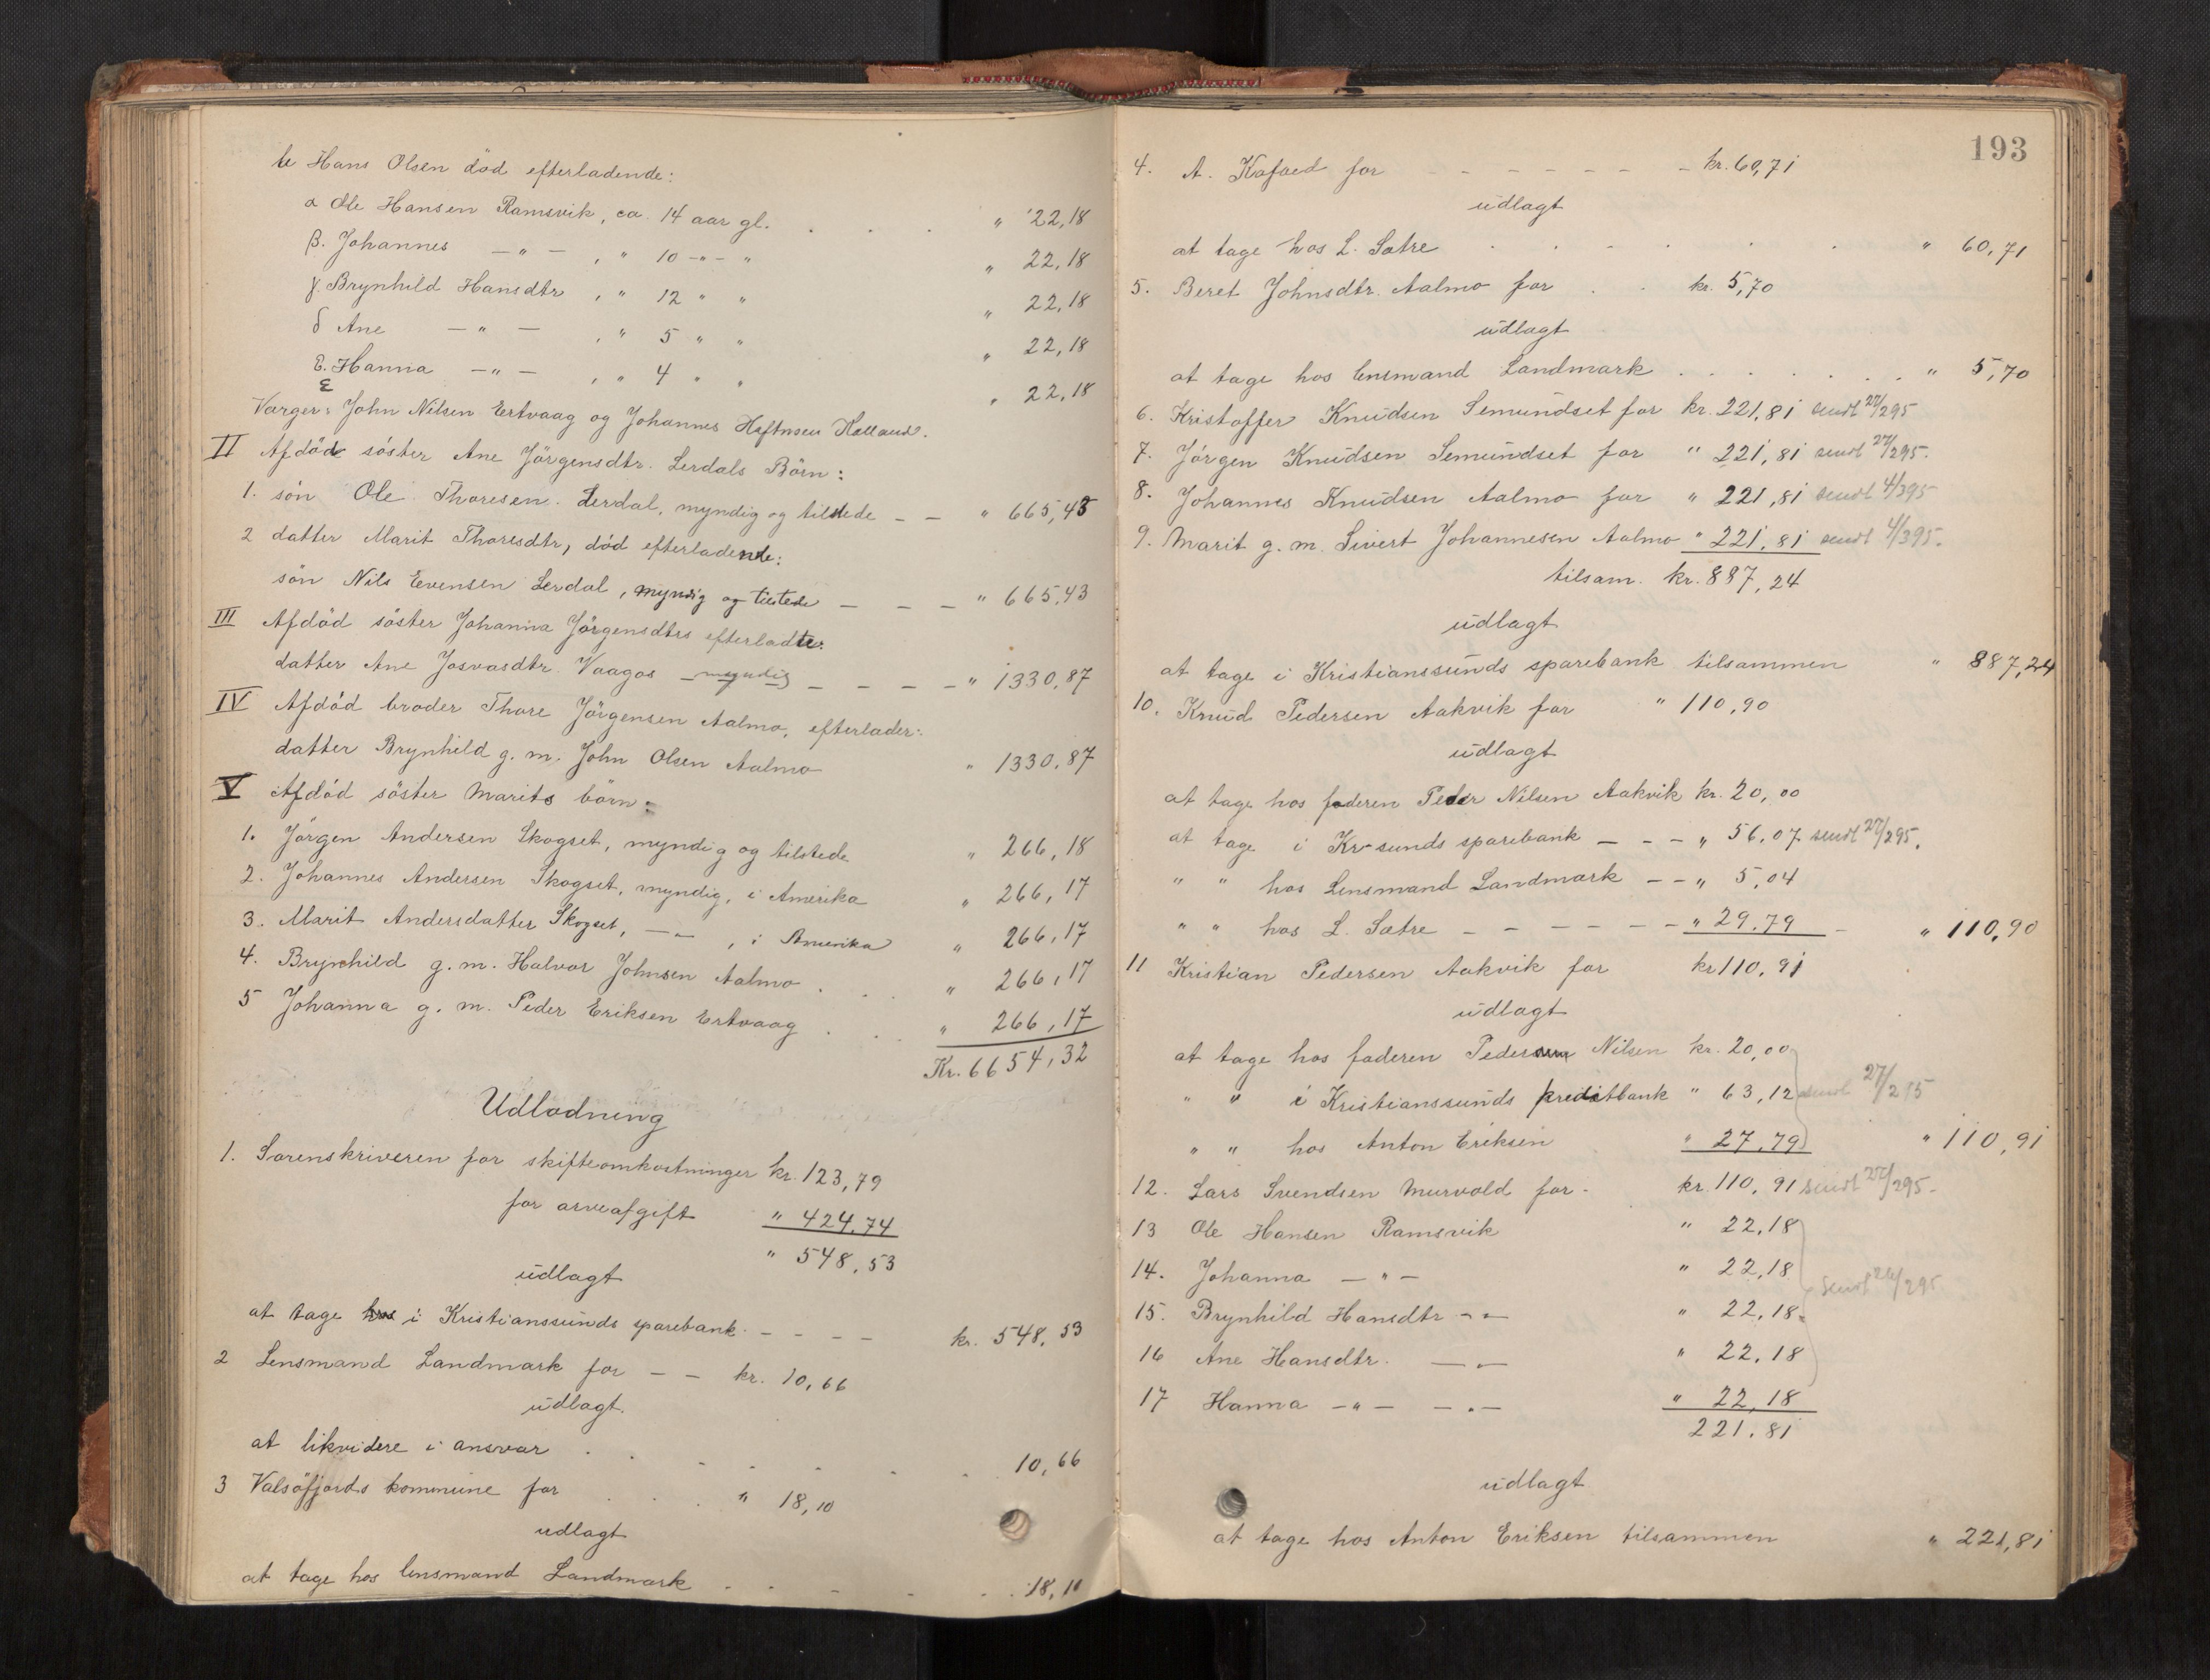 te Hans Olsen död efterladende:
α Ole Hansen Ramsvik, ca. 14 aar gl. . . . " 22,18
β. Johannes — " — , " 10 - " - " " 22,18
γ. Brynhild Hansdtr , " 12 " " " 22,18
δ Ane — " — , " 5 " " " 22,18
ε. Hanna — " — , " 4 " " " 22,18
Værger: John Nilsen Ertvaag og Johannes
II Afdöd söster Ane Jörgensdtr. Lerdals Börn:
1. sön Ole Thoresen Lerdal, myndig og tilstede — — " 665,43
2 datter Marit Thoresdtr, död efterladende:
sön Nils Evensen Lerdal, myndig og tilstede — — — " 665,43
III Afdöd söster Johanna Jörgensdtrs efterladte:
datter Ane Josvasdtr. Vaagos — myndig — — — — " 1330,87
IV Afdöd broder Thore Jörgensen Aalmo, efterlader:
datter Brynhild g. m. John Olsen Aalmo " 1330,87
V Afdöd söster Marits börn:
1. Jörgen Andersen Skogset, myndig og tilstede " 266,18
2. Johannes Andersen Skogset, myndig, i Amerika " 266,17
3. Marit Andersdatter Skogset, — " — , i Amerika " 266,17
4. Brynhild g. m. Halvor Johnsen Aalmo . . . " 266,17
5 Johanna g. m. Peder Eriksen Ertvaag . . . " 266,17
Kr. 6654,32
Udlodning
1. Sorenskriveren for skifteomkostninger kr. 123,79
for arveafgift " 424,74
" 548,53
udlagt
at tage hos i Kristianssunds sparebank. — — — — kr. 548,53
2 Lensmand Landmark for — — kr. 10,66
udlagt.
at likvidere i ansvar . . . . . . . 10,66
3 Valsöfjords kommune for . . . " 18,10
udlagt
at tage hos lensmand Landmark . . . . . 18,10
193
4. A. Kofoed for — — — — — — kr. 60,71
udlagt
at tage hos L. Sætre . . . . . . . " 60,71
5. Beret Johnsdtr. Aalmo for . . kr. 5,70
udlagt
at tage hos lensmand Landmark . . . . . . . " 5,70
6. Kristoffer Knudsen Semundset for kr. 221,81 sendt 27/2 95
7. Jörgen Knudsen Semundset for " 221,81 sendt 27/2 95.
8. Johannes Knudsen Aalmo for " 221,81 sendt 4/3 95
9. Marit g. m. Sivert Johannesen Aalmo " 221,81 sendt 4/3 95.
tilsam. kr. 887,24
udlagt
at tage i Kristianssunds sparebank tilsammen " 887,24
10. Knud Pedersen Aakvik for " 110,90
udlagt
at tage hos faderen Peder Nilsen Aakvik kr. 20,00
at tage i Kr-sunds sparebank — — — " 56,07 sendt 27/2 95.
" " hos Lensmand Landmark — — " 5,04
" " hos L. Sætre — — — — — — " 29,79 — " 110,90
11 Kristian Pedersen Aakvik for kr 110,91
udlagt
at tage hos faderen Peder Nilsen kr. 20,00
" " i Kristianssunds kreditbank " 63,12 sendt 27/2 95
" " hos Anton Eriksen " 27,79 " 110,91
12. Lars Svendsen Murvold for. kr. 110,91 sendt 27/2 95.
13 Ole Hansen Ramsvik " 22,18
14. Johanna — " — " 22,18 sendt 26/2 95
15. Brynhild Hansdtr — " — " 22,18
16 Ane Hansdtr. — " — " 22,18
17 Hanna — " — — " — " 22,18
221,81
udlagt
at tage hos Anton Eriksen tilsammen " 221,81